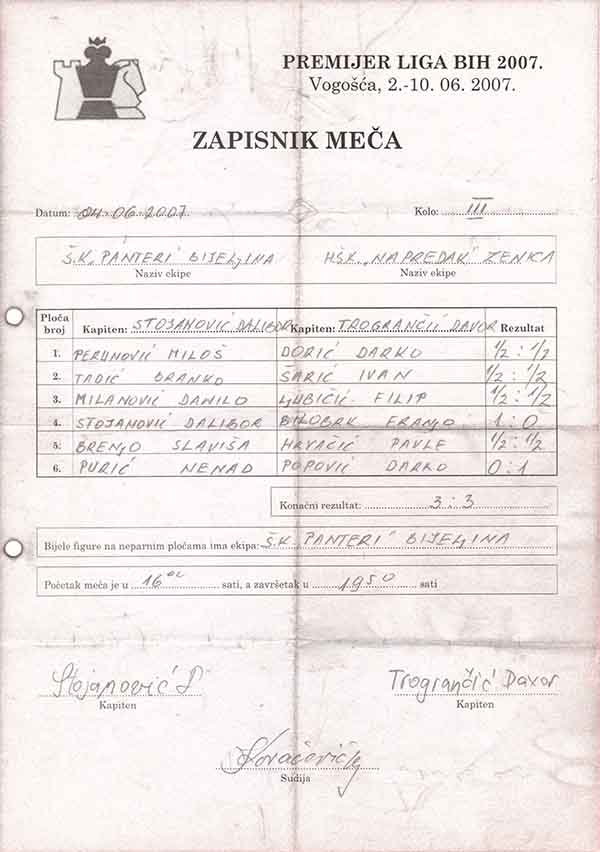 PREMIJER LIGA BIH 2007.
Vogošća, 2.-10. 06. 2007.
ZAPISNIK MEČA
Datum: 04.06.2007. Kolo: III
Š.K. „PANTERI" BIJELJINA HŠK. „NAPREDAK" ZENICA
Naziv ekipe Naziv ekipe
Ploča broj Kapiten: STOJANOVIĆ DALIBOR Kapiten: TROGRANČIĆ DAVOR Rezultat
1. PERUNOVIĆ MILOŠ DORIĆ DARKO 1/2 : 1/2
2. TADIĆ BRANKO ŠARIĆ IVAN 1/2 : 1/2
3. MILANOVIĆ DANILO LJUBIČIĆ FILIP 1/2 : 1/2
4. STOJANOVIĆ DALIBOR BILOBRK FRANJO 1 : 0
5. BRENJO SLAVIŠA HRVAČIĆ PAVLE 1/2 : 1/2
6. PURIĆ NENAD POPOVIĆ DARKO 0 : 1
Konačni rezultat: 3 : 3
Bijele figure na neparnim pločama ima ekipa: Š.K. „PANTERI" BIJELJINA
Početak meča je u 16 00 sati, a završetak u 19 50 sati
Stojanović D Trogrančić Davor
Kapiten Kapiten
Kovačević
Sudija